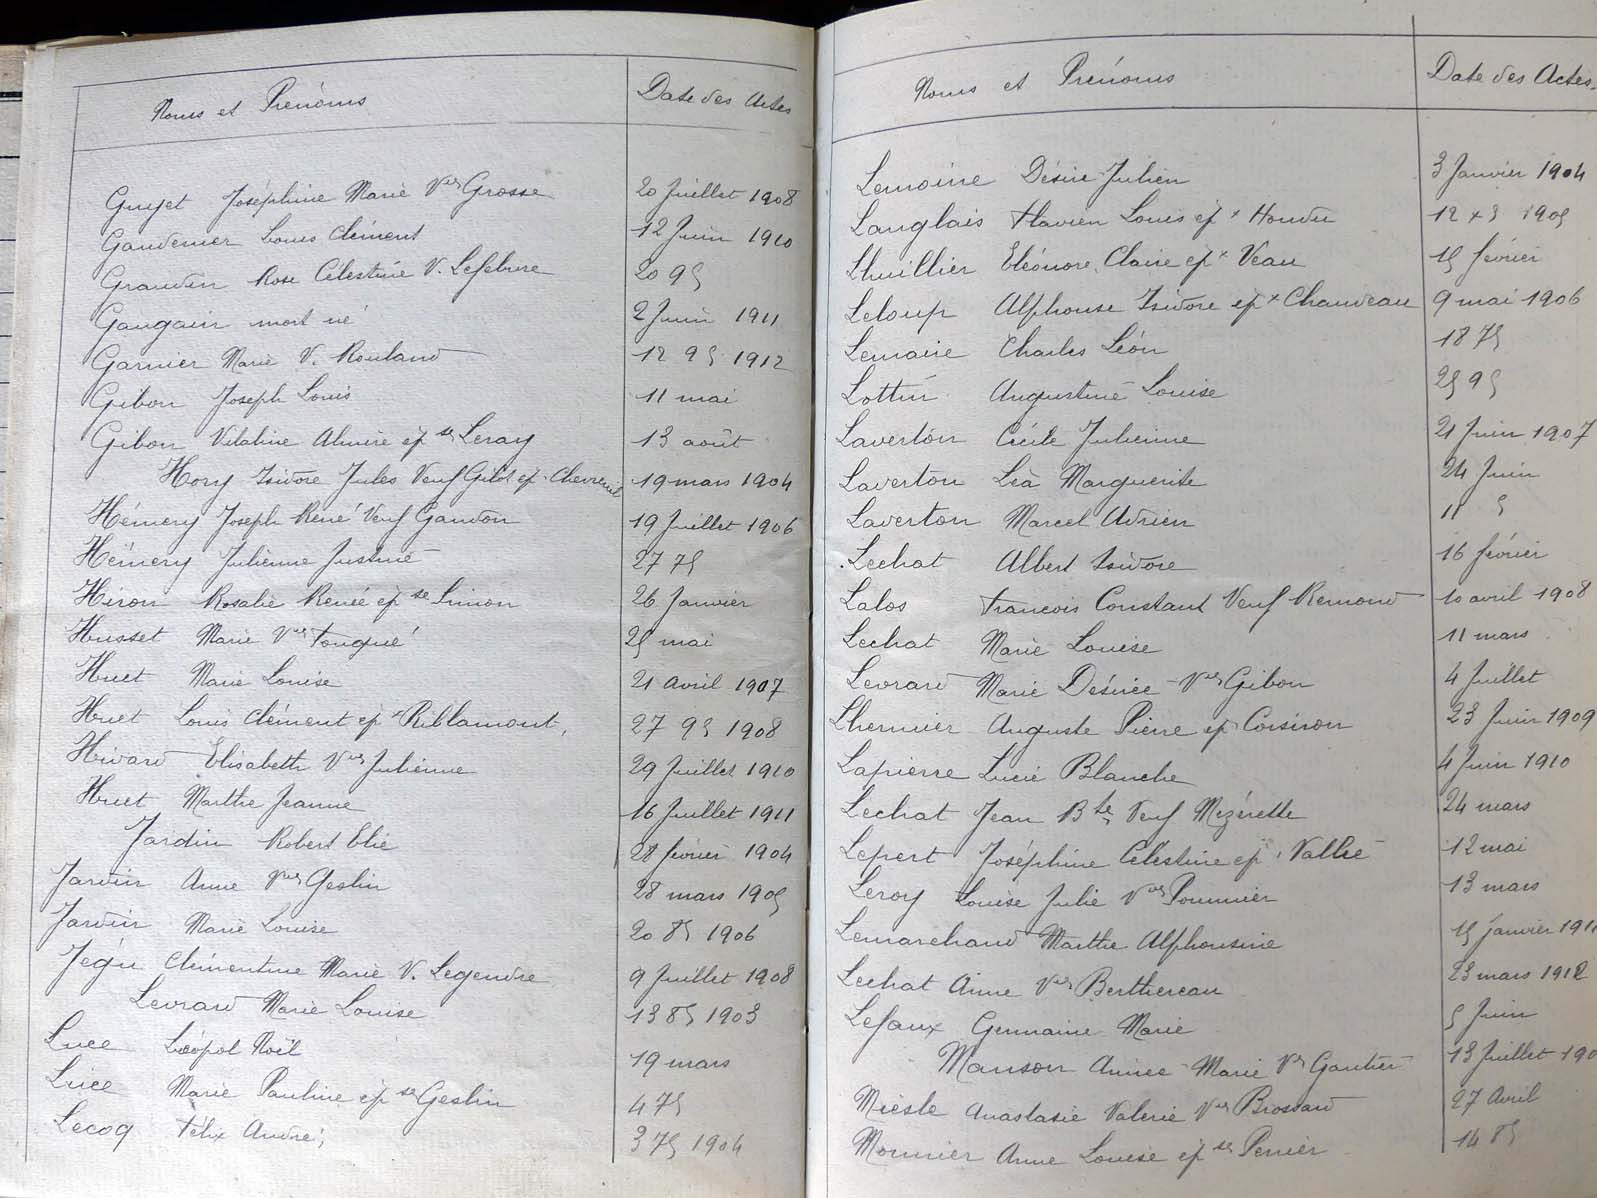 Noms et Prénoms Date des Actes
Guyet Joséphine Marie Vve Grosse 20 Juillet 1908
Gaudemer Louis Clément 12 Juin 1910
Grandin Rose Célestine V. Lefebvre 20 9b
Gaugain mort né 2 Juin 1911
Garnier Marie V. Rouland 12 9b 1912
Gibon Joseph Louis 11 mai
Gibon Almire ép se Leray 13 août
Hory Isidore Jules Veuf Gilot ép. Chevreuil 19 mars 1904
Hémery Joseph René Veuf Gandon 19 Juillet 1906
Hémery Julienne Justine 27 7b
Hiron Rosalie Renée ép se Simon 26 Janvier
Husset Marie Vve Fouqué 25 mai
Huet Marie Louise 21 avril 1907
Huet Louis Clément ép x Riblamont, 27 9b 1908
Hivard Elisabeth Vve Julienne 29 Juillet 1910
Huet Marthe Jeanne 16 Juillet 1911
Jardin Robert Elie 28 février 1904
Jardin Anne Vve Geslin 28 mars 1905
Jardin Marie Louise 20 8b 1906
Jégu Clémentine Marie V. Legendre 9 Juillet 1908
Levrard Marie Louise 13 8b 1903
Luce Léopol Noël 19 mars
Luce Marie Pauline ép se Geslin 4 7b
Lecoq Félix André; 3 7b 1904
Noms et Prénoms Date des Actes.
Lemoine Désiré Julien 3 Janvier 1904
Langlais Flavien Louis ép x Houdu 12 x b 1905
Lhuillier Eléonore, Claire ép x Veau 15 février
Leloup Alphonse Isidore ép x Chauveau 9 mai 1906
Lemaire Charles Léon 18 7b
Lottin Augustine Louise 25 9b
Laverton Cécile Julienne 21 Juin 1907
Laverton Léa Marguerite 24 Juin
Laverton Marcel Adrien 11
Lechat Albert Isidore 16 février
Lalos Francois Constant Veuf Rémond 10 avril 1908
Lechat Marie Louise 11 mars
Levrard Marie Désirée Vve Gibon 4 Juillet
Lhermier Auguste Pierre ép Corsiron 23 Juin 1909
Lapierre Lucie Blanche 4 Juin 1910
Lechat Jean Bte Veuf Mézérette 24 mars
Lepert Joséphine Célestine ép. Vallée 12 mai
Leroy Louise Julie Vve Pommier 13 mars
Lemarchand Marthe Alphonsine 15 janvier 191
Lechat Anne Vve Berthereau 23 mars 1912
Lefaux Germaine Marie 5 Juin
Manson Aimée Marie Vve Gautier 13 Juillet 190
Miesle Anastasie Valerie Vve Brossard 27 Avril
Monnier Anne Louise ép se Perrier 14 8b